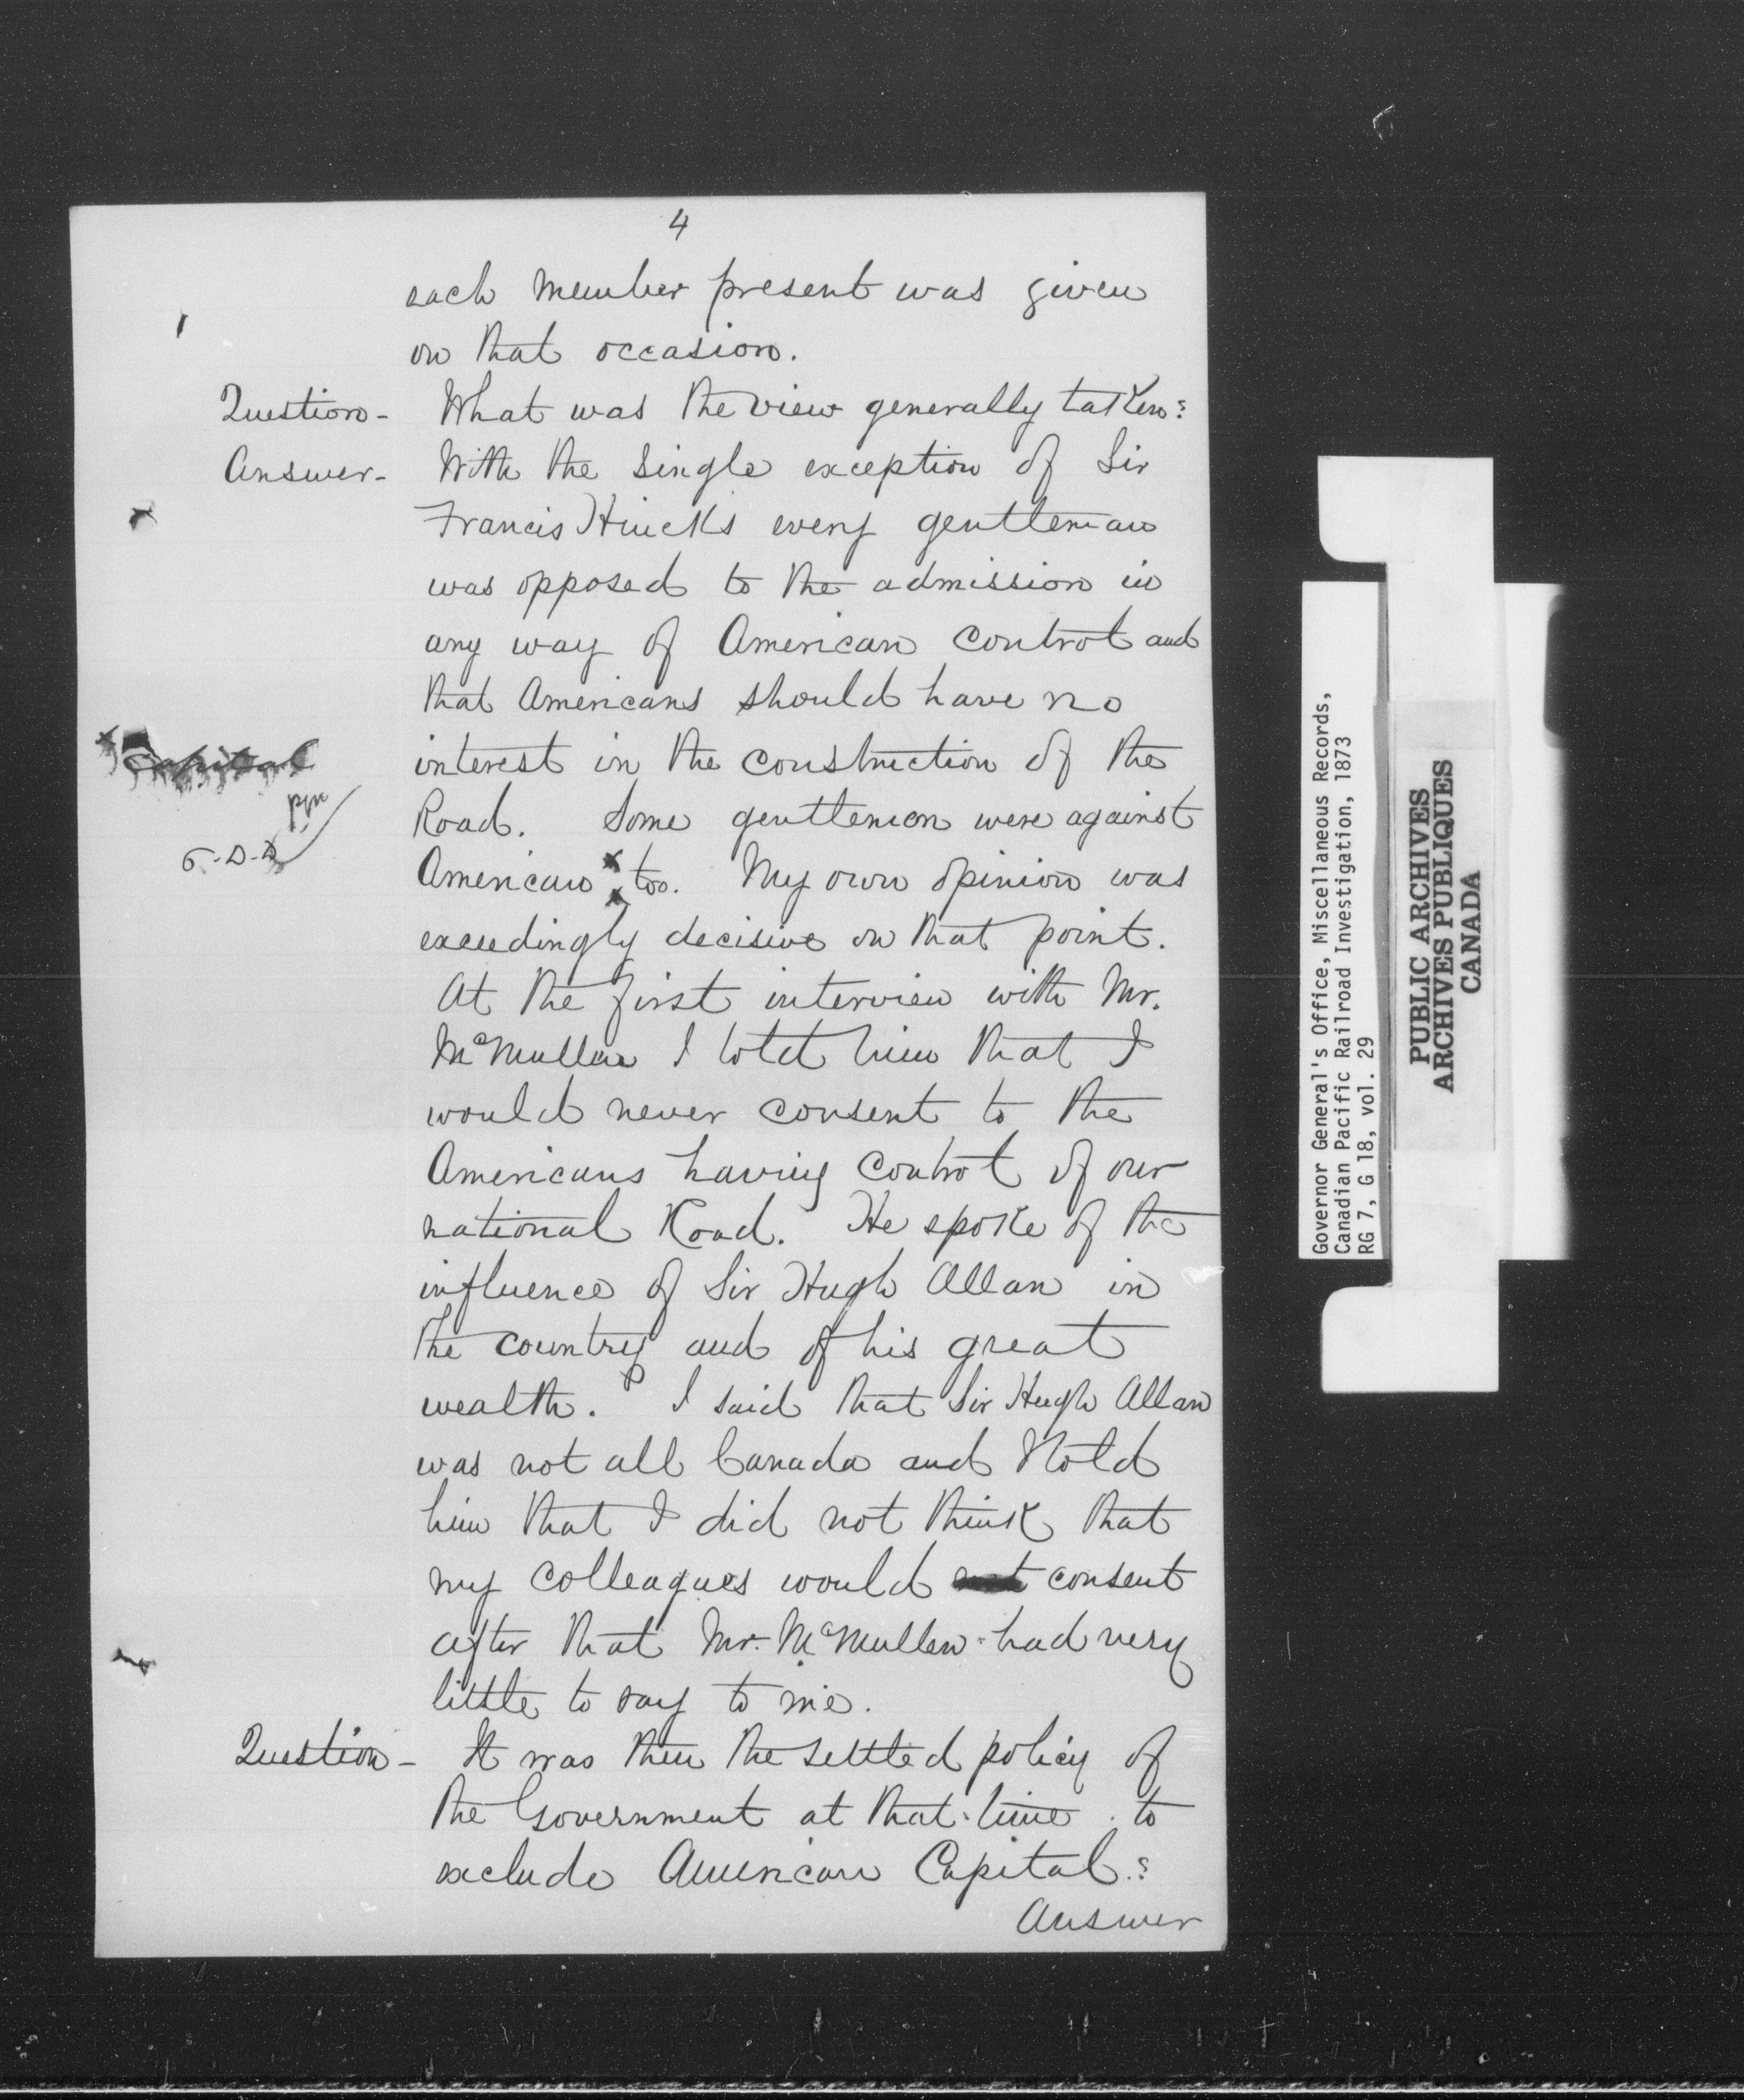 4
each member present was given
on that occasion.
Question- What was the view generally taken?
Answer- With the single exception of Sir
Francis Hincks every gentleman
was opposed to the admission in
any way of American control and
that Americans should have no
x Capital
interest in the construction of the
Road. Some gentlemen were against
American x too. My own opinion was
exceedingly decisive on that point.
At the first interview with Mr.
McMullen I told him that I
would never consent to the
Americans having control of our
national Road. He spoke of the
influence of Sir Hugh Allan in
the country and of his great
wealth. I said that Sir Hugh Allan
was not all Canada and I told
him that I did not think that
my colleagues would consent
after that Mr. McMullen had very
little to say to me.
Question- It was then the settled policy of
the Government at that time to
exclude American Capital?
Answer
Governor General's Office, Miscellaneous Records,
Canadian Pacific Railroad Investigation, 1873
RG 7, G 18, vol. 29
PUBLIC ARCHIVES
ARCHIVES PUBLIQUES
CANADA